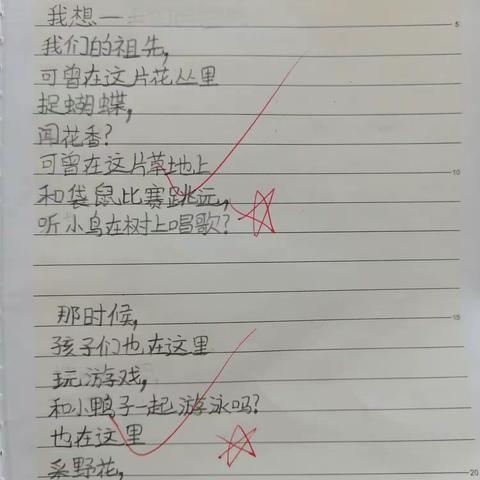 我想一
我们的祖先，
可曾在这片花丛里
捉蝴蝶，
闻花香？
可曾在这片草地上
和袋鼠比赛跳远，
听小鸟在树上唱歌？
那时候，
孩子们也在这里
玩游戏，
和小鸭子一起游泳吗？
也在这里
采野花，
5
10
15
20